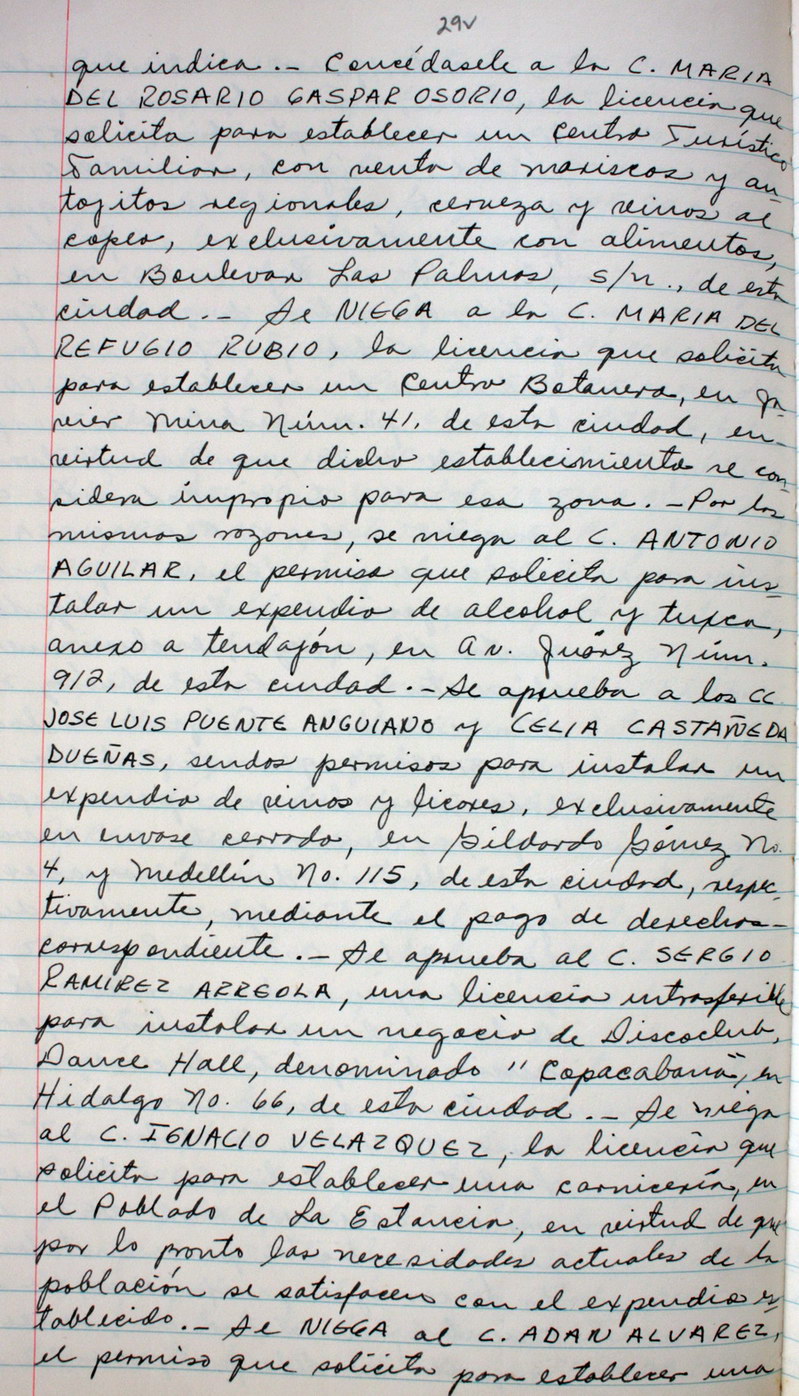 29v
que indica.- Concédasele a la C. MARIA
DEL ROSARIO GASPAR OSORIO, la licencia que
solicita para establecer un Centro Turístico
Familiar, con venta de mariscos y an-
tojitos regionales, cerveza y vinos al
copeo, exclusivamente con alimentos,
en Boulevar Las Palmas, s/n., de esta
ciudad.- Se NIEGA a la C. MARIA DEL
REFUGIO RUBIO, la licencia que solicita
para establecer un Centro Botanero, en Ja-
vier Mina Núm. 41, de esta ciudad, en-
virtud de que dicho establecimiento se con-
sidera impropio para esa zona.- Por las
mismas razones, se niega al C. ANTONIO
AGUILAR, el permiso que solicita para ins-
talar un expendio de alcohol y tuxca,
anexo a tendajón, en Av. Juárez Núm.
912, de esta ciudad.- Se aprueba a los CC.
JOSE LUIS PUENTE ANGUIANO y CELIA CASTAÑEDA
DUEÑAS, sendos permisos para instalar un
expendio de vinos y licores, exclusivamente
en envase cerrado, en Gildardo Gómez No.
4, y Medellín No. 115, de esta ciudad, respec-
tivamente, mediante el pago de derechos-
correspondiente.- Se aprueba al C. SERGIO
RAMIREZ ARREOLA, una licencia intrasferible
para instalar un negocio de Discoclub,
Dance Hall, denominado "Copacabana", en
Hidalgo No. 66, de esta ciudad.- Se niega
al C. IGNACIO VELAZQUEZ, la licencia que
solicita para establecer una carnicería, en
el Poblado de La Estancia, en virtud de que
por lo pronto las necesidades actuales de la
población se satisfacen con el expendio es-
tablecido.- Se NIEGA al C. ADAN ALVAREZ,
el permiso que solicita para establecer una